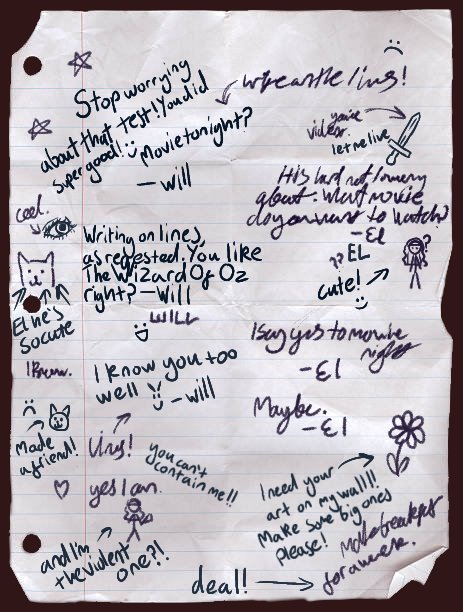 Stop worrying
about that test! You did
super good! Movie tonight?
— Will
write on the lines!
you're
violent.
let me live
It's hard not to worry
about. What movie
do you want to watch?
- El
cool.
Writing on lines,
as requested. You like
The Wizard Of Oz
right? — Will
?? EL
cute!
El he's
so cute
WILL
I say yes to movie
night
- El
I know.
I know you too
well - Will
Maybe.
- El
Made
a friend!
lines!
you can't
contain me!!
yes I can.
I need your
art on my wall!!
Make some big ones
Please!
and I'm
the violent
one?!
Make breakfast
for a week.
deal!